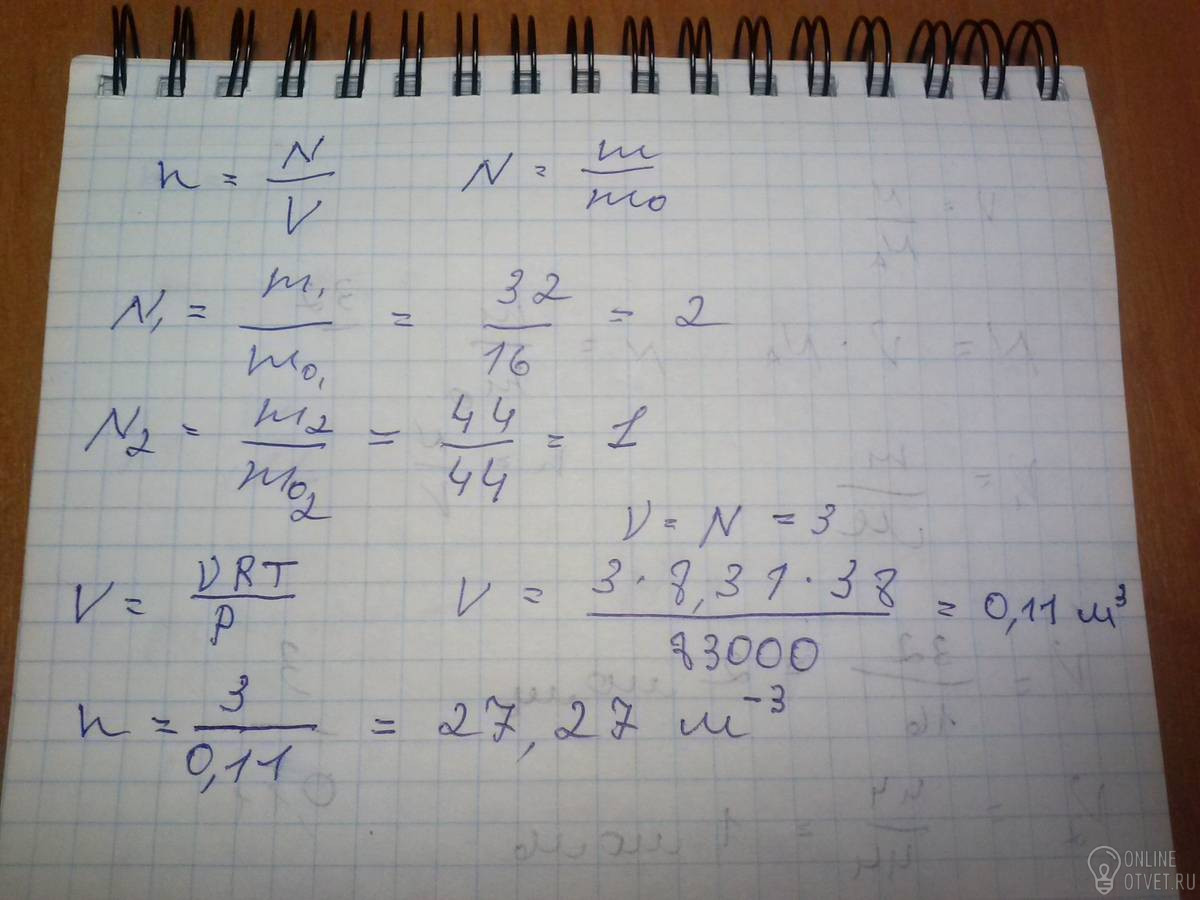 n = N/V N = m/m₀
N₁ = m₁/m₀₁ = 32/16 = 2
N₂ = m₂/m₀₂ = 44/44 = 1
V = N = 3
V = VRT/P V = 3·8,31·38/83000 = 0,11 м³
n = 3/0,11 = 27,27 м⁻³
ONLINE
OTVET.RU